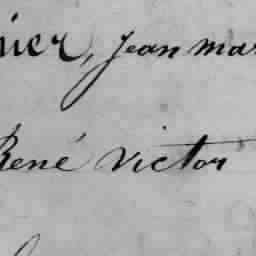 nier, Jean mar
René Victor